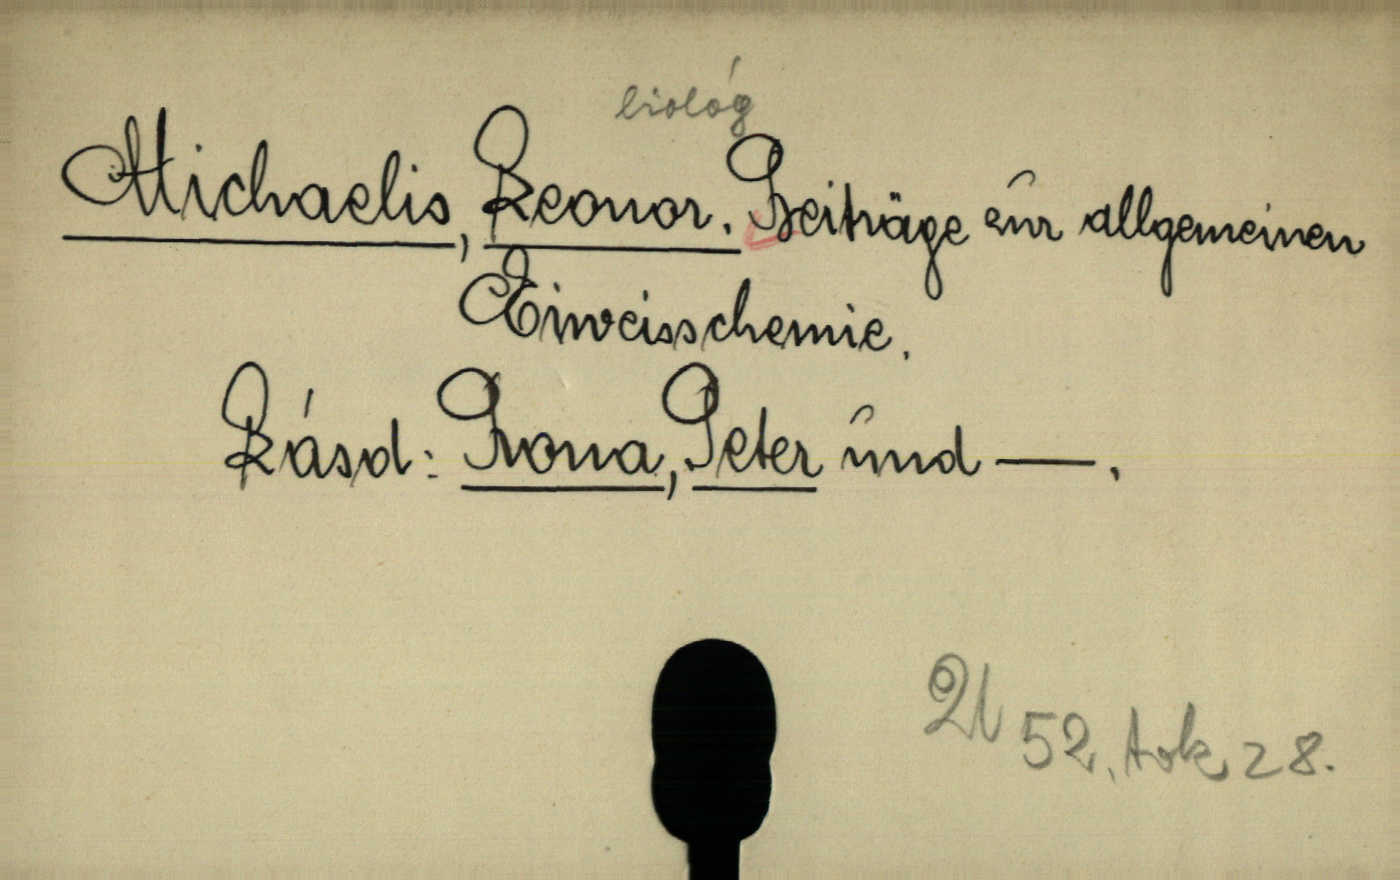 biológ
Michaelis, Leonor. Beiträge zur allgemeinen
Eiweisschemie.
Lásd: Rona, Peter und — .
21 52. tok 28.